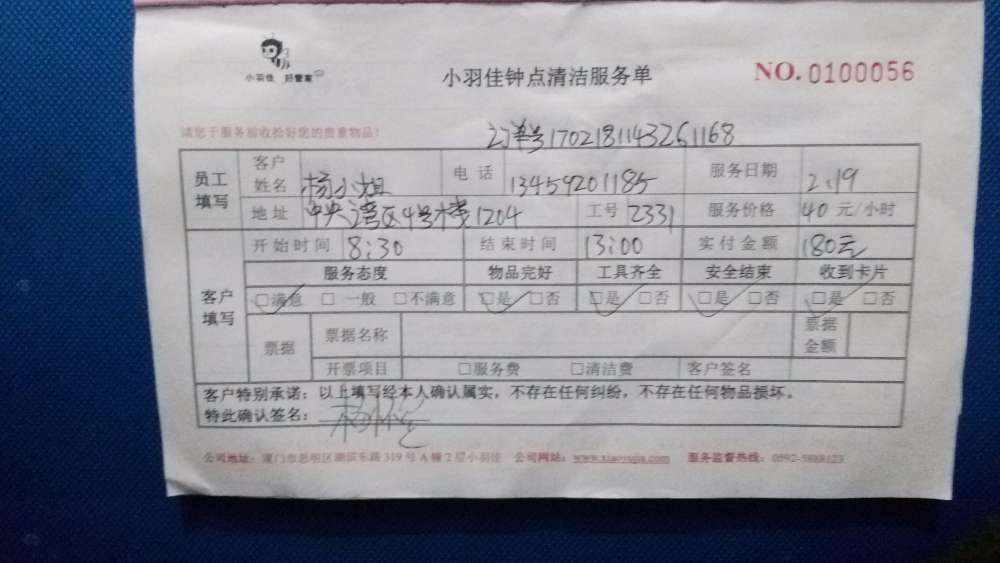 小羽佳 好管家
小羽佳钟点清洁服务单
NO. 0100056
请您于服务前收拾好您的贵重物品!
订单号1702181143261168
员工填写 客户姓名 杨小姐 电话 13459201185 服务日期 2.19
地址 中央湾区4号楼1204 工号 2331 服务价格 40 元/小时
客户填写 开始时间 8:30 结束时间 13:00 实付金额 180元
服务态度 物品完好 工具齐全 安全结束 收到卡片
□满意 □一般 □不满意 □是 □否 □是 □否 □是 □否 □是 □否
票据 票据名称 票据金额
开票项目 □服务费 □清洁费 客户签名
客户特别承诺:以上填写经本人确认属实,不存在任何纠纷,不存在任何物品损坏。
特此确认签名:
公司地址:厦门市思明区湖滨东路 319 号 A 幢 2 层小羽佳 公司网站:www.xiaoyujia.com 服务监督热线:0592-5888123